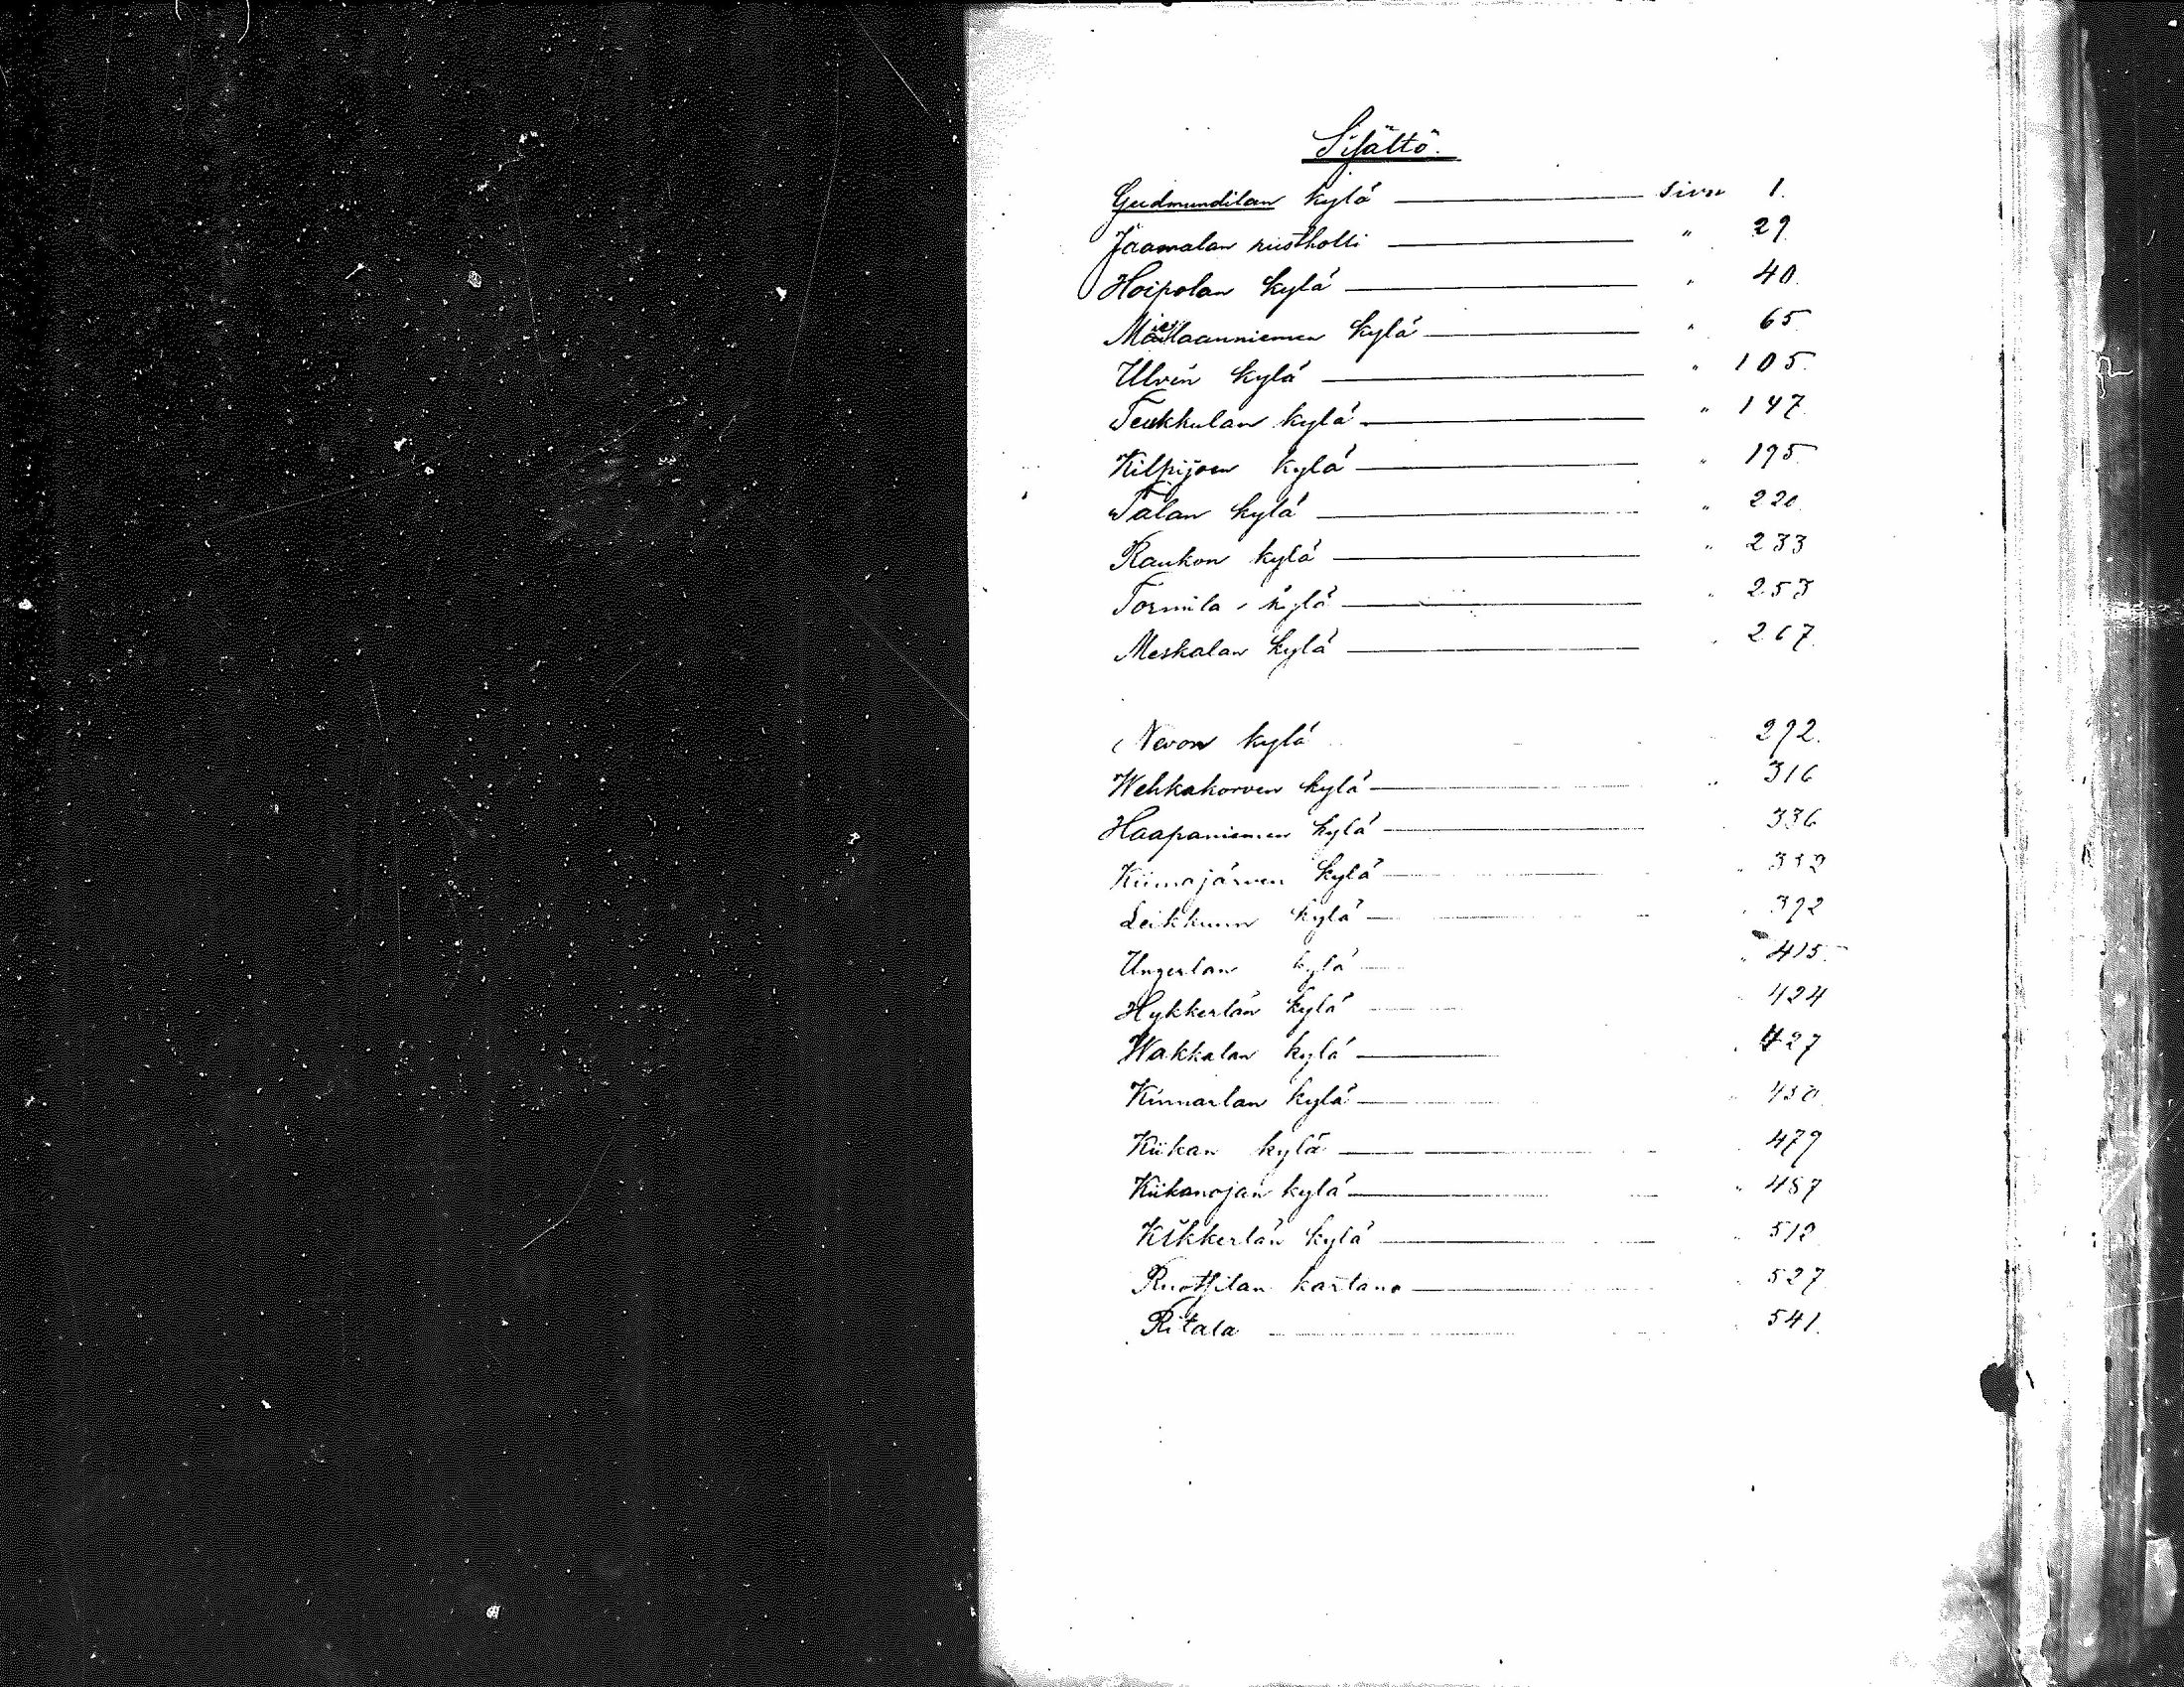 Sisältö.
Gudmundilan kylä — sivu 1.
Jaamalan rustholli — " 29.
Hoipolan kylä — " 40.
kylä — " 65.
Ulvin kylä — " 105.
Teukkulan kylä — " 147.
Kilpijoen kylä — " 195.
Talan kylä — " 220.
Raukon kylä — " 233
Tormila kylä — " 253
Meskalan kylä — " 267.
Nevon kylä " 292.
Wehkakorven kylä — " 316
Haapaniemen kylä — " 336
Kiimajärven kylä — "
Leikkuun kylä — " 392
Ungerlan kylä — " 415.
Hykkerlän kylä — " 424
Wakkalan kylä — " 427
Kinnarlan kylä — " 430.
Kiikan kylä — " 479
Kiikanojan kylä — " 487
Kikkerlän kylä — "
Ruotsilan kartano — " 527.
Ritala — " 541.